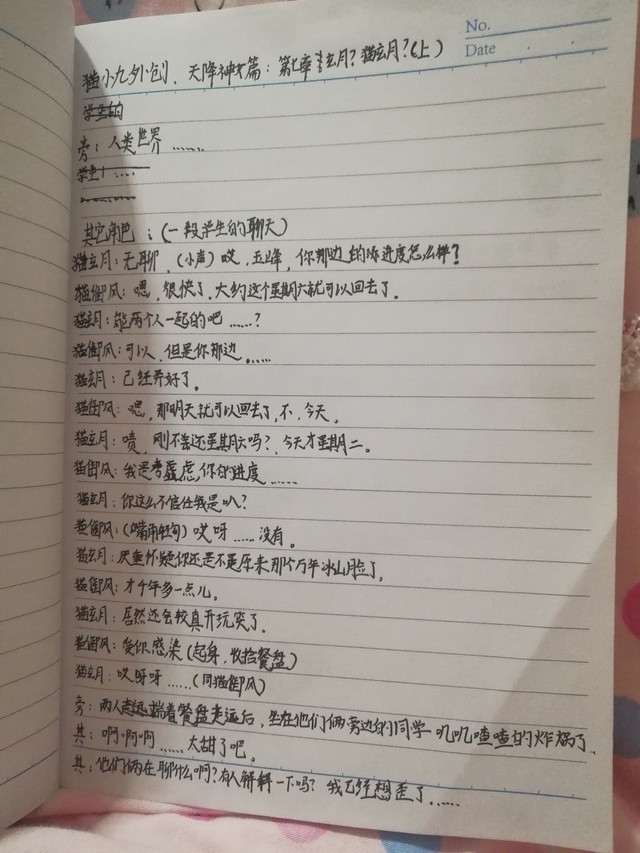 No.
Date
猫小九外创、天降神才篇：第七章 玄月？猫玄月？(上)
学生的
旁：人类世界……
学生1……
其它角色：(一般学生的聊天)
猫玄月：无聊，(小声)哎，玉峰，你那边的进度怎么样？
猫御风：嗯，很快了，大约这个星期六就可以回去了。
猫玄月：能两个人一起的吧……？
猫御风：可以，但是你那边……
猫玄月：已经弄好了。
猫御风：嗯，那明天就可以回去了，不，今天。
猫玄月：啧，刚不是还星期六吗？今天才星期二。
猫御风：我是考虑你的进度……
猫玄月：你这么不信任我是叭？
猫御风：(嘴角)哎呀……没有。
猫玄月：严重怀疑你还是不是原来那个万年冰山脸了。
猫御风：才千年多一点儿。
猫玄月：居然还会较真开玩笑了。
猫御风：受你感染(起身，收拾餐盘)
猫玄月：哎呀呀……(同猫御风)
旁：两人端着餐盘走远后，坐在他们俩旁边的同学叽叽喳喳的炸锅了
其：啊啊啊……太甜了吧。
其：他们俩在聊什么啊？有人解释一下吗？我已经想歪了……